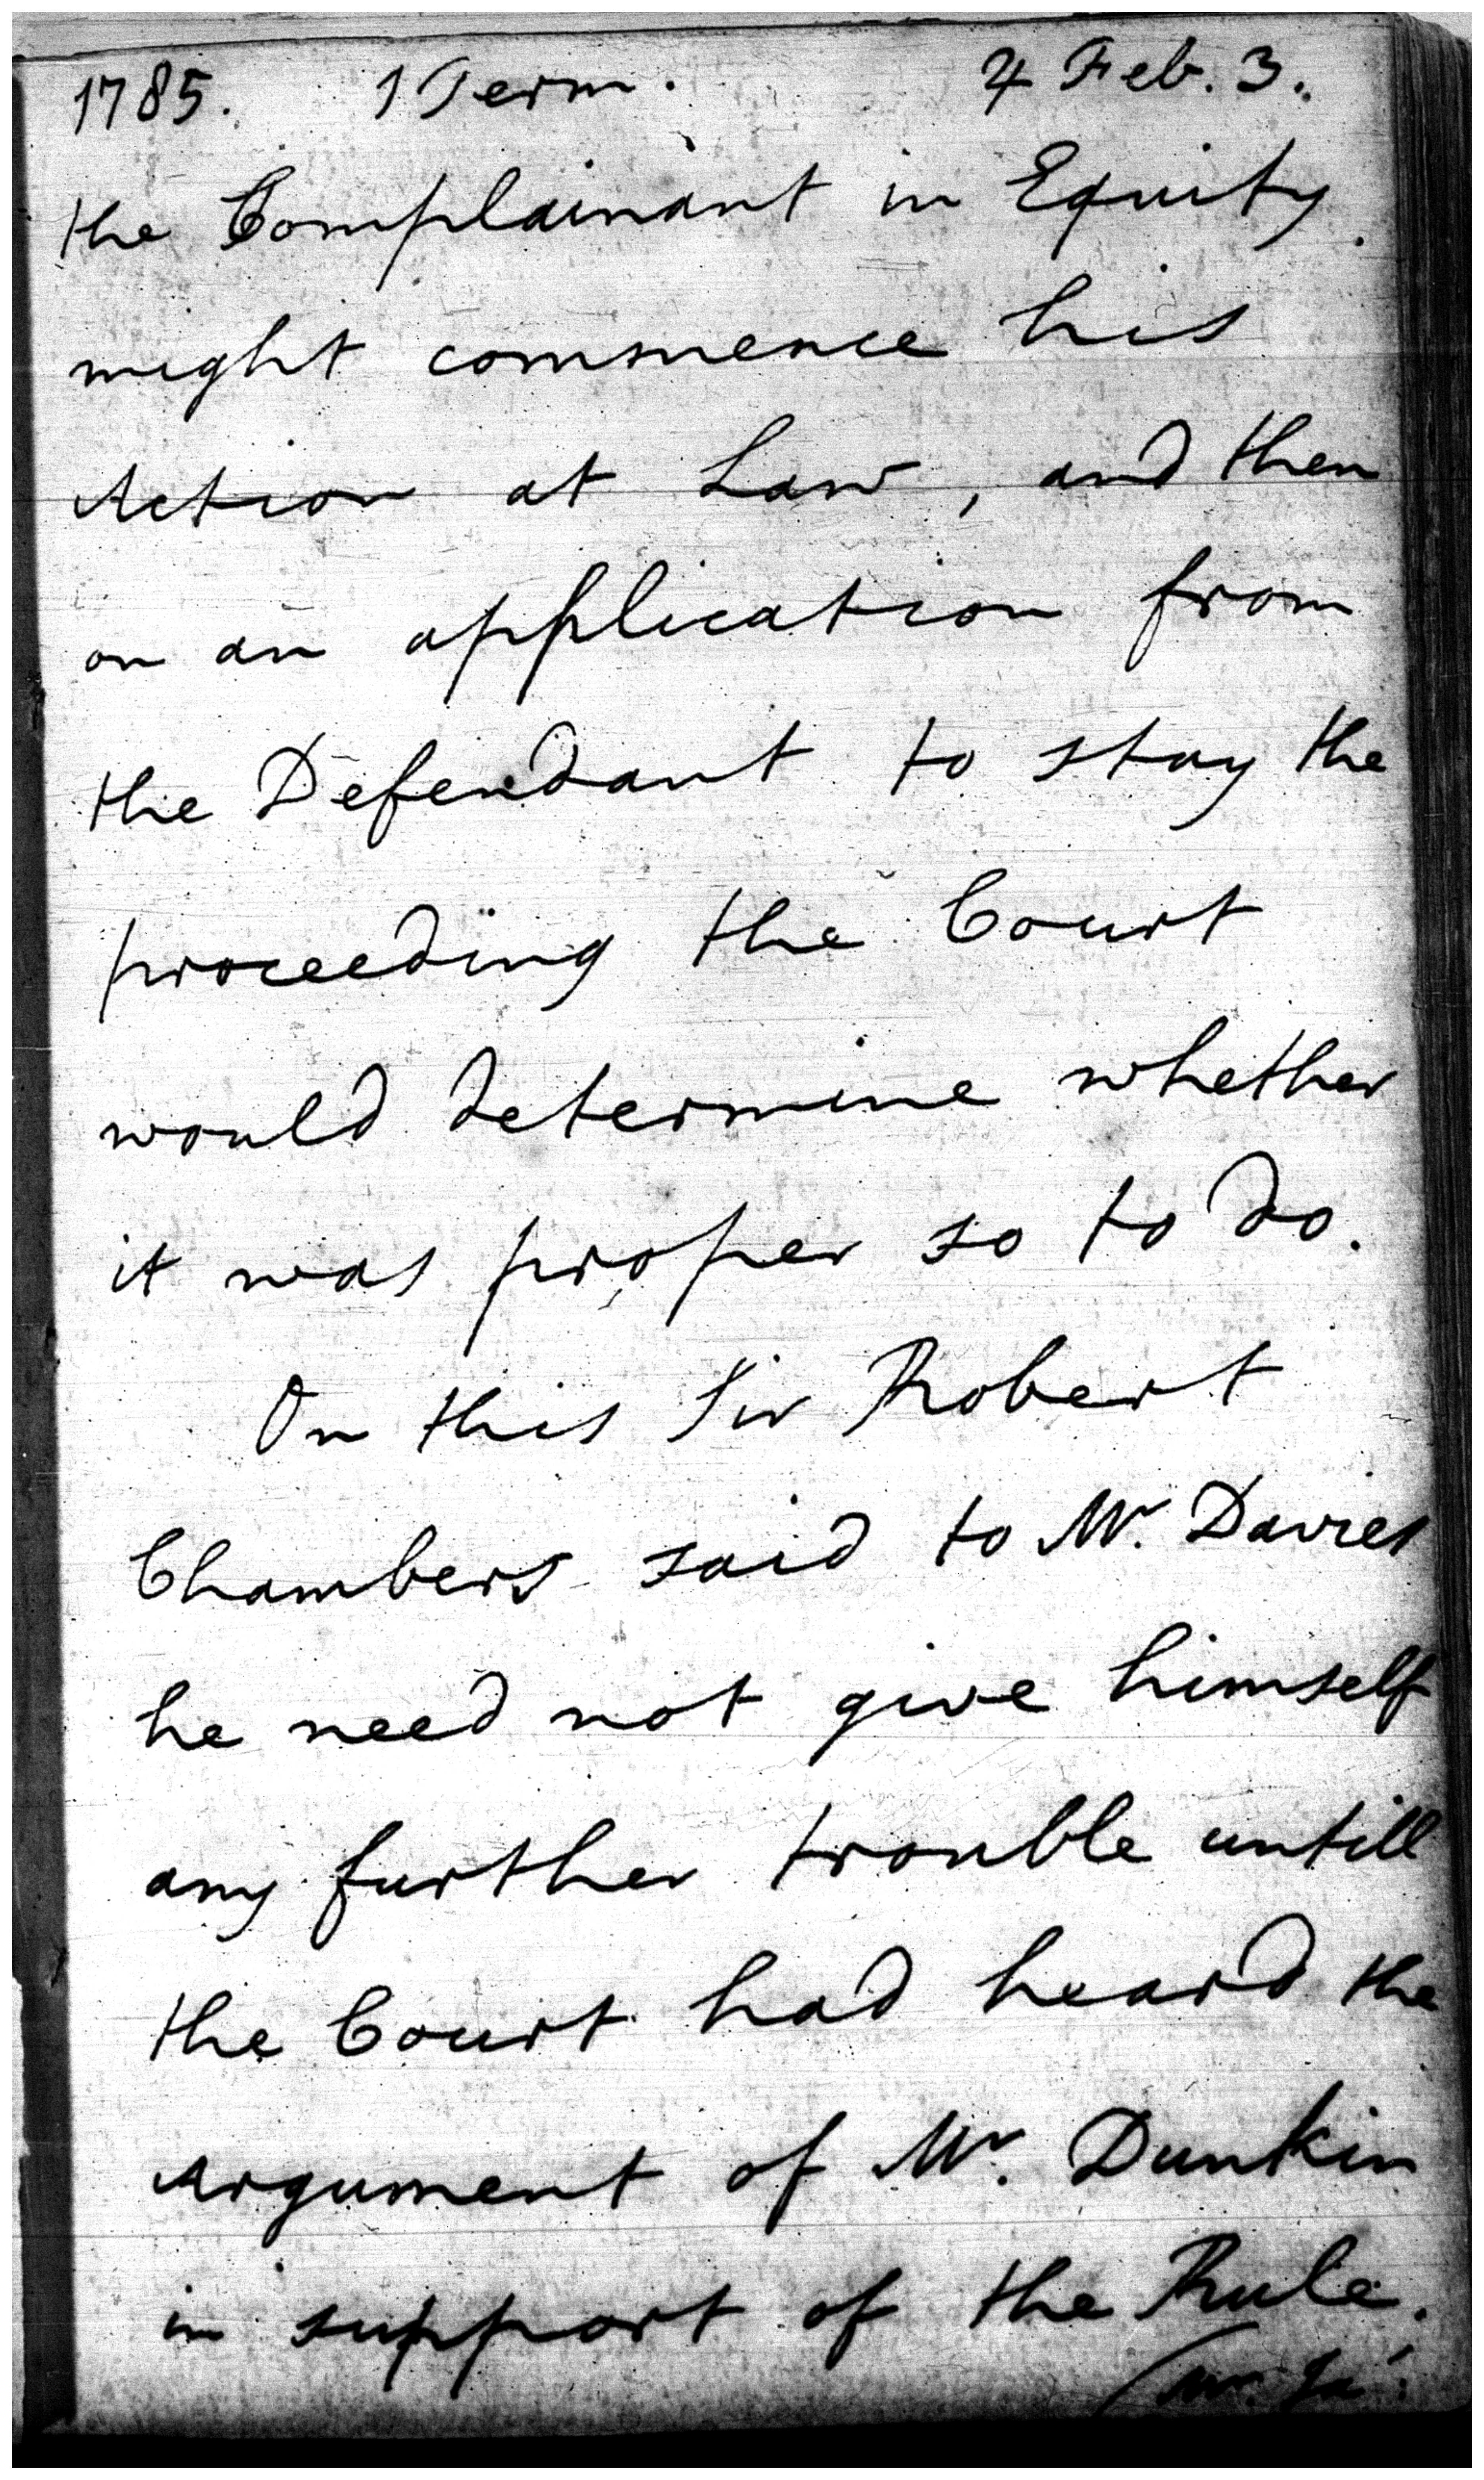 1785. 1 Term. 4 Feb. 3.
the Complainant in Equity
might commence his
Action at Law, and then
on an application from
the Defendant to stay the
proceeding the Court
would determine whether
it was proper so to do.
On this Sir Robert
Chambers said to Mr. Davies
he need not give himself
any further trouble untill
the Court had heard the
Argument of Mr. Dunkin
in support of the Rule.
(Mr. Ja: